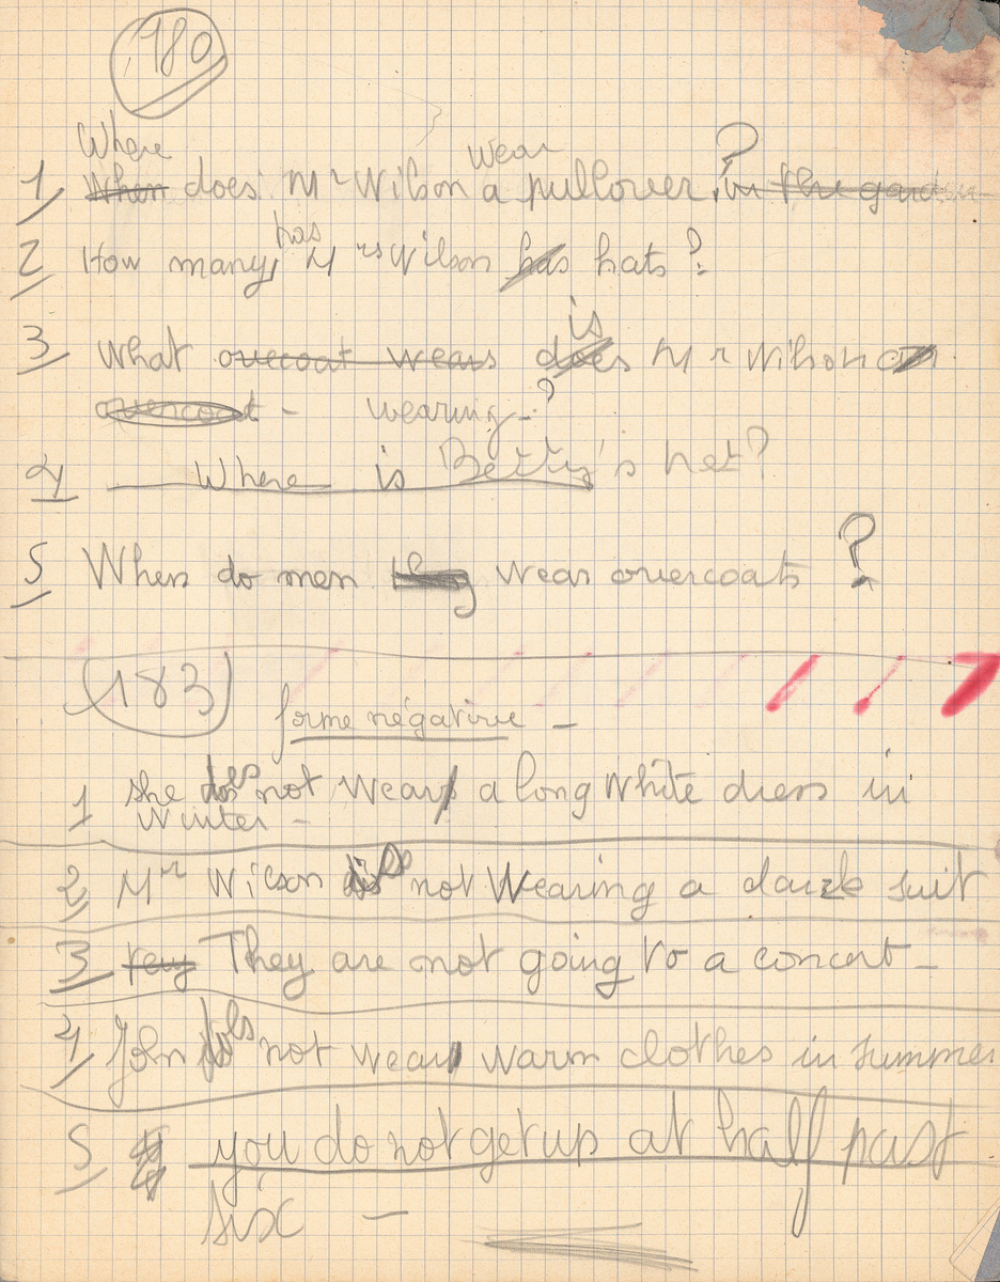 180
Where wear
1 When does Mr Wilson a pullover ? in the garden
has
2 How many Mrs Wilson has hats ?
is
3 What overcoat wears does Mr Wilson on
overcoat - wearing - ?
4 Where is Betty's hat ?
5 When do men they wear overcoats ?
183
forme négative -
1 she does not wear a long white dress in
winter -
2 Mr Wilson is not wearing a dark suit
3 They They are not going to a concert -
4 John does not wear warm clothes in summer
5 you do not get up at half past
six -